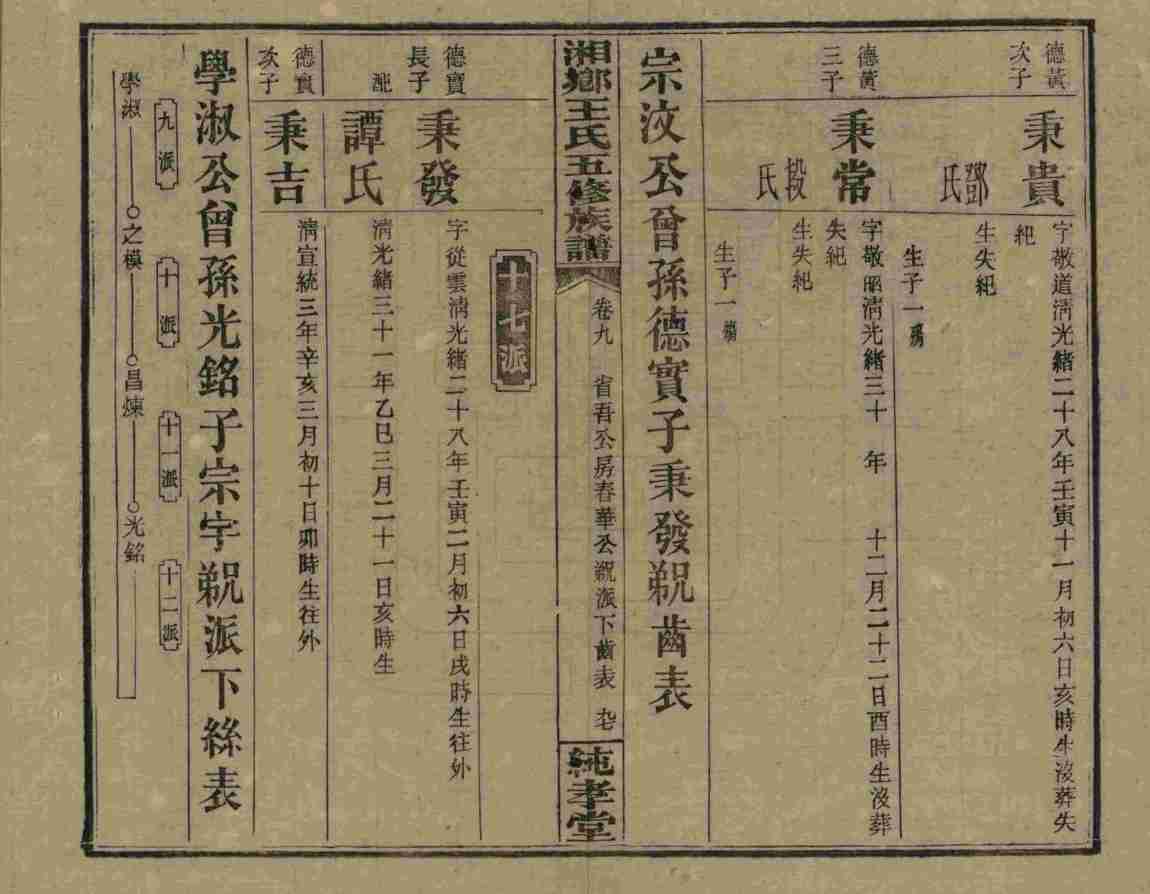 德黃次子
秉貴
字敬道清光緒二十八年壬寅十一月初六日亥時生沒葬失
紀
鄧氏
生失紀
生子一
德黃三子
秉常
字敬昭清光緒三十年 十二月二十二日酉時生沒葬
失紀
段氏
生失紀
生子一
宗汶公曾孫德實子秉發覝齒表
湘鄉王氏五修族譜
卷九 省吾公房春華公覝派下齒表
純孝堂
十七派
德實長子
秉發
字從雲清光緒二十八年壬寅二月初六日戌時生往外
配
譚氏
清光緒三十一年乙巳三月二十一日亥時生
德實次子
秉吉
清宣統三年辛亥三月初十日卯時生往外
學淑公曾孫光銘子宗宇覝派下絲表
九派
十派
十一派
十二派
學淑
之模
昌煉
光銘